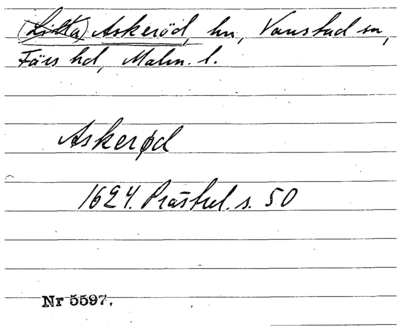 (Lilla) Askeröd, hn, Vanstad sn,
Färs hd, Malm. l.
Askerød
1624. Prästrel. s. 50
Nr 5597.